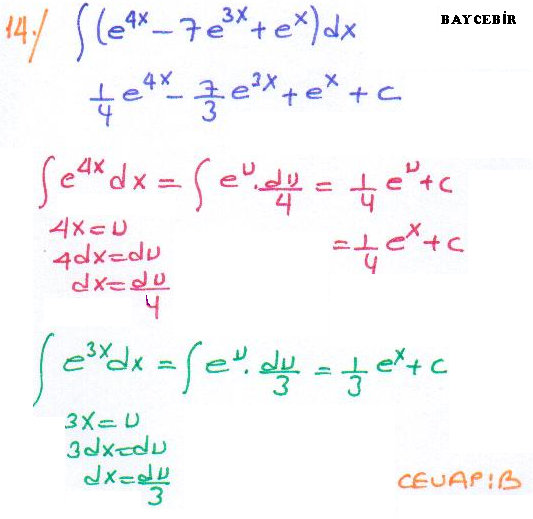 14./ ∫(e^{4x} - 7e^{3x} + e^{x})dx
BAYCEBİR
1/4 e^{4x} - 7/3 e^{3x} + e^{x} + c
∫e^{4x}dx = ∫e^{u}.du/4 = 1/4 e^{u}+c
4x=u
= 1/4 e^{x}+c
4dx=du
dx=du/4
∫e^{3x}dx = ∫e^{u}.du/3 = 1/3 e^{x}+c
3x=u
3dx=du
dx=du/3
CEVAP:B